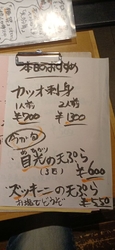 本日のおすすめ
カツオ刺身
1人前 2人前
¥700 ¥1300
めひかり
目光の天ぷら
(3匹) ¥600
ズッキーニの天ぷら
お塩でどうぞ ¥550